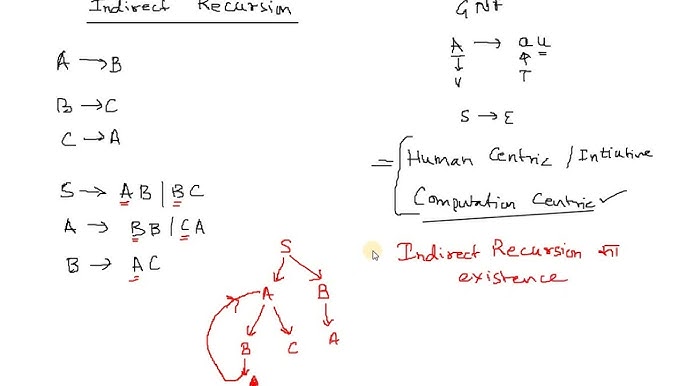 Indirect Recursion
A → B
B → C
C → A
S → A B | B C
A → B B | C A
B → A C
GNF
A → a u
↓
V
↑
T
S → E
= Human Centric / Intiutive
Computation Centric ✓
Indirect Recursion का
existence
S
A B
B C A
A